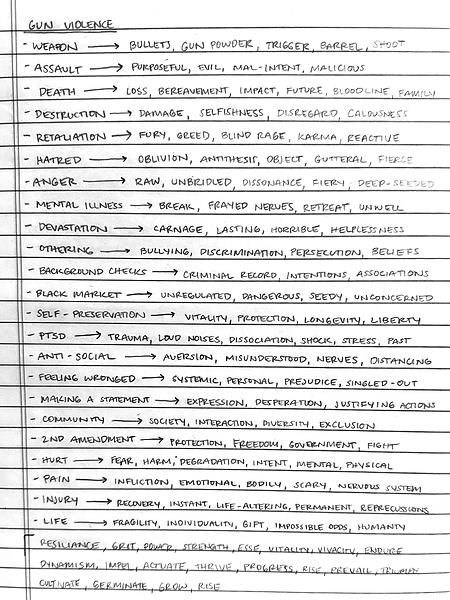 GUN VIOLENCE
- WEAPON → BULLETS, GUN POWDER, TRIGGER, BARREL, SHOOT
- ASSAULT → PURPOSEFUL, EVIL, MAL-INTENT, MALICIOUS
- DEATH → LOSS, BEREAVEMENT, IMPACT, FUTURE, BLOODLINE, FAMILY
- DESTRUCTION → DAMAGE, SELFISHNESS, DISREGARD, CALOUSNESS
- RETALIATION → FURY, GREED, BLIND RAGE, KARMA, REACTIVE
- HATRED → OBLIVION, ANTITHESIS, OBJECT, GUTTERAL, FIERCE
- ANGER → RAW, UNBRIDLED, DISSONANCE, FIERY, DEEP-SEEDED
- MENTAL ILLNESS → BREAK, FRAYED NERVES, RETREAT, UNWELL
- DEVASTATION → CARNAGE, LASTING, HORRIBLE, HELPLESSNESS
- OTHERING → BULLYING, DISCRIMINATION, PERSECUTION, BELIEFS
- BACKGROUND CHECKS → CRIMINAL RECORD, INTENTIONS, ASSOCIATIONS
- BLACK MARKET → UNREGULATED, DANGEROUS, SEEDY, UNCONCERNED
- SELF-PRESERVATION → VITALITY, PROTECTION, LONGEVITY, LIBERTY
- PTSD → TRAUMA, LOUD NOISES, DISSOCIATION, SHOCK, STRESS, PAST
- ANTI-SOCIAL → AVERSION, MISUNDERSTOOD, NERVES, DISTANCING
- FEELING WRONGED → SYSTEMIC, PERSONAL, PREJUDICE, SINGLED-OUT
- MAKING A STATEMENT → EXPRESSION, DESPERATION, JUSTIFYING ACTIONS
- COMMUNITY → SOCIETY, INTERACTION, DIVERSITY, EXCLUSION
- 2ND AMENDMENT → PROTECTION, FREEDOM, GOVERNMENT, FIGHT
- HURT → FEAR, HARM, DEGRADATION, INTENT, MENTAL, PHYSICAL
- PAIN → INFLICTION, EMOTIONAL, BODILY, SCARY, NERVOUS SYSTEM
- INJURY → RECOVERY, INSTANT, LIFE-ALTERING, PERMANENT, REPRECUSSIONS
- LIFE → FRAGILITY, INDIVIDUALITY, GIFT, IMPOSSIBLE ODDS, HUMANITY
RESILIANCE, GRIT, POWER, STRENGTH, ESSE, VITALITY, VIVACITY, ENDURE
DYNAMISM, IMPEL, ACTUATE, THRIVE, PROGRESS, RISE, PREVAIL, TRIUMPH
CULTIVATE, GERMINATE, GROW, RISE